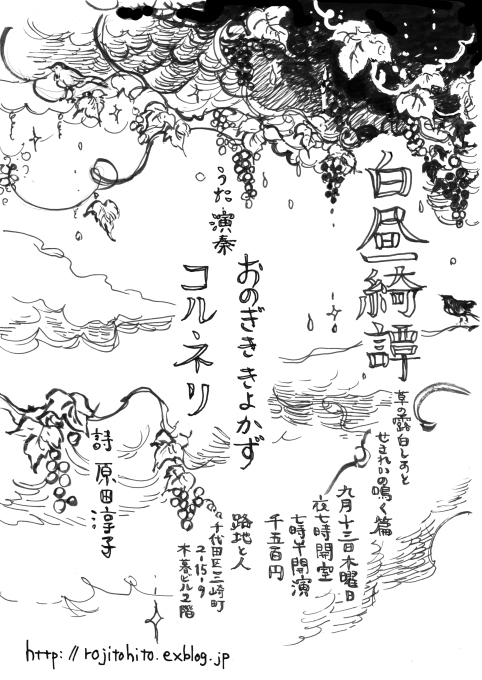 白昼綺譚
草の露白しあと
せきれいの鳴く篇
九月十三日木曜日
夜七時開室
七時半開演
千五百円
路地と人
千代田区三崎町
2-15-9
木暮ビル2階
うた 演奏
おのぎき きよかず
コルネリ
詩 原田淳子
http://rojitohito.exblog.jp